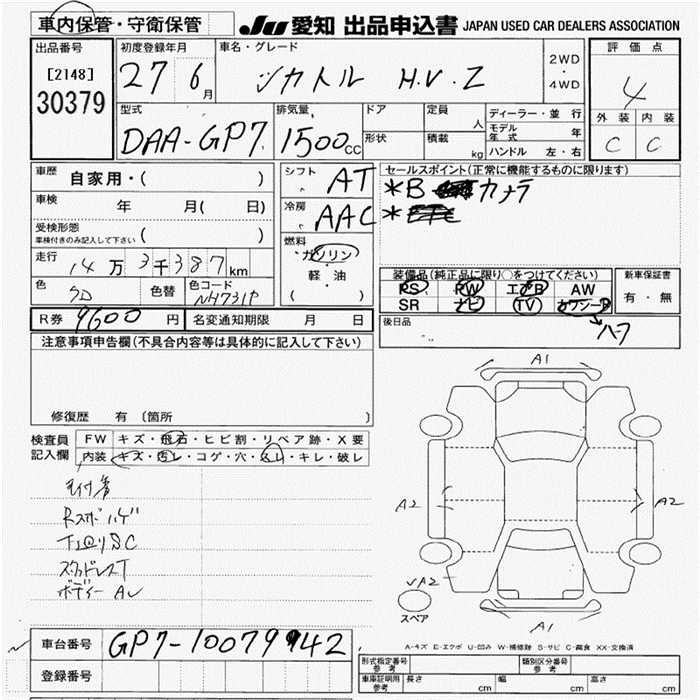 車内保管・守衛保管
JU 愛知 出品申込書 JAPAN USED CAR DEALERS ASSOCIATION
出品番号
[2148]
30379
初度登録年月
27 6月
車名・グレード
H.V.Z
2WD
・
4WD
評価点
4
外装 内装
C C
型式
DAA-GP7
排気量
1500cc
ドア
形状
定員 人
積載 kg
ディーラー・並行
モデル年式 年
ハンドル 左・右
車歴 自家用・( )
車検 年 月( 日)
受検形態
車検付きのみ記入して下さい ( )
走行 14万3千387km
色
色替
色コード
NH731P
シフト AT
冷房 AAC
燃料
ガソリン
・
軽・油
( )
セールスポイント(正常に機能するものに限ります)
*B カメラ
*
装備品(純正品に限り○をつけてください)
PS PW エアB AW
SR ナビ TV カワシート
→ハーフ
新車保証書
有・無
R券 9600円
名変通知期限 月 日
後日品
注意事項申告欄(不具合内容等は具体的に記入して下さい)
修復歴 有 〔箇所 〕
検査員記入欄
FW キズ・飛石・ヒビ割・リペア跡・X要
内装 キズ・汚レ・コゲ・穴・スレ・キレ・破レ
Rスポハゲ
スタッドレスT
ボディー AU
A1
A2
A2
A2
スペア
A1
A-キズ E-エクボ U-凹み W-補修跡 S-サビ C-腐食 XX-交換済
車台番号 GP7-1007942
登録番号
形式指定番号
参考
類別区分番号
参考
車庫証明用
参考
長さ cm
幅 cm
高さ cm